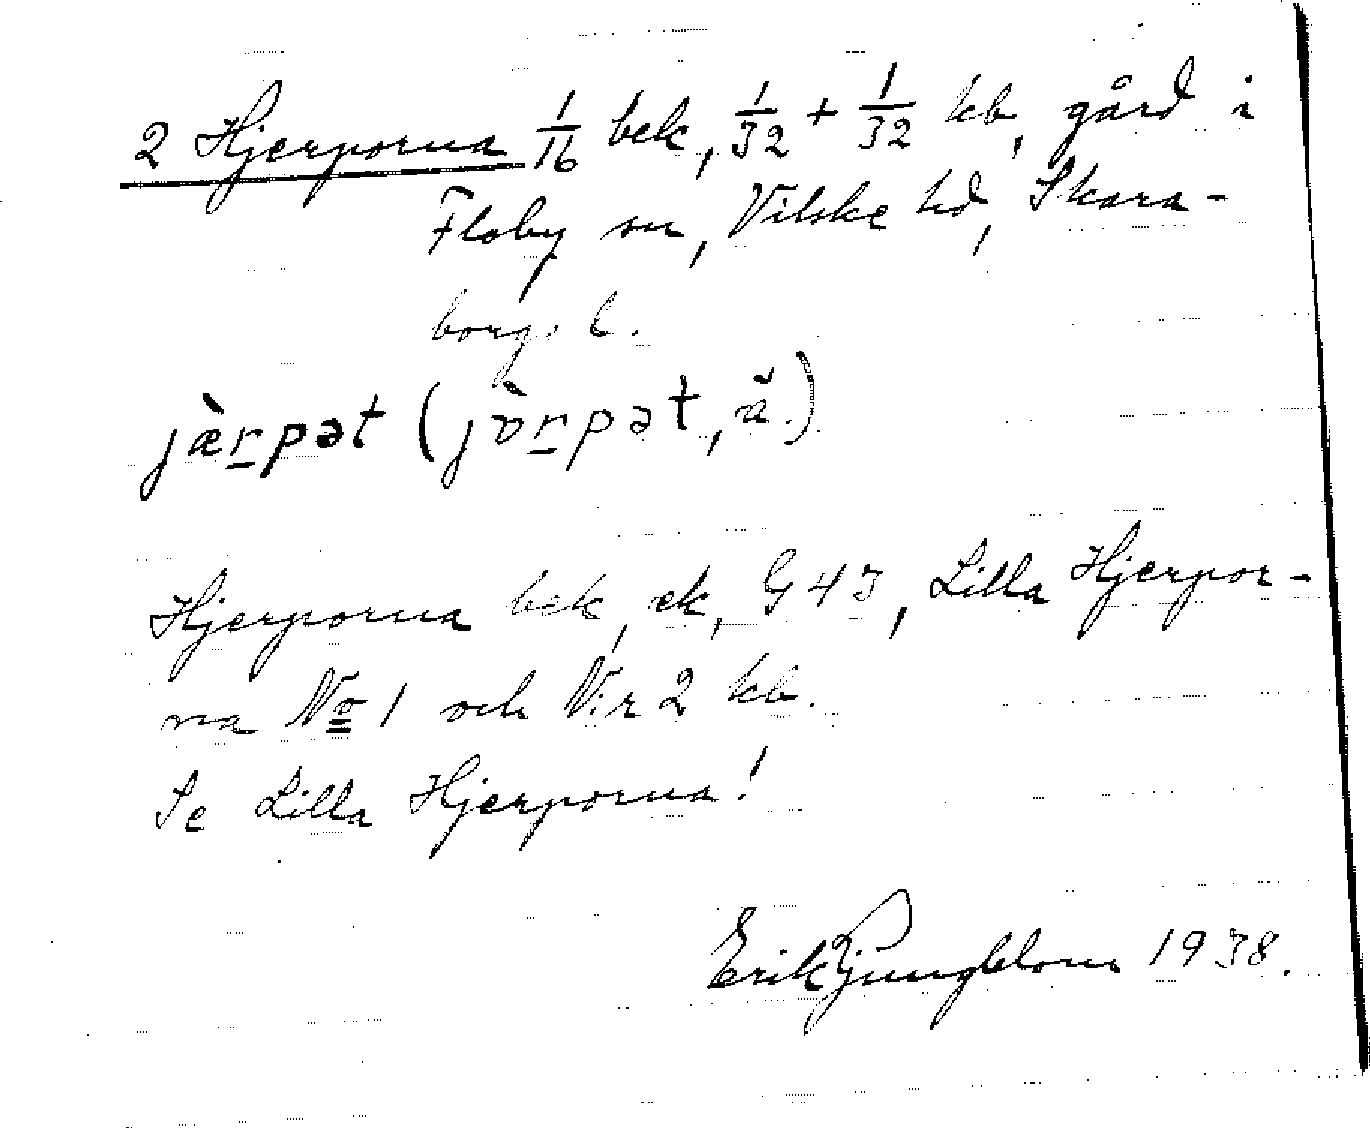 2 Hjerporna 1/16 bek, 1/32 + 1/32 kb, gård i
Floby sn, Vilske hd, Skara-
borgs l.
jæ̀r̠pət (jɒ̀r̠pət, ǎ.)
Hjerporna bek, ek, G 43, Lilla Hjerpor-
na No̳ 1 och N:r 2 kb.
Se Lilla Hjerporna!
Erik Ljungblom 1938.